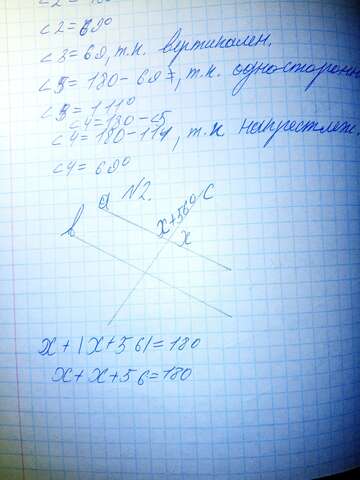 ∠2=69°
∠3=69, т.к. вертикален.
∠5=180-69, т.к. односторонн
∠5=111°
∠4=180-∠5
∠4=180-111, т.к накрестлеж.
∠4=69°
N2.
a
c
в
x+56°
x
x+(x+56)=180
x+x+56=180